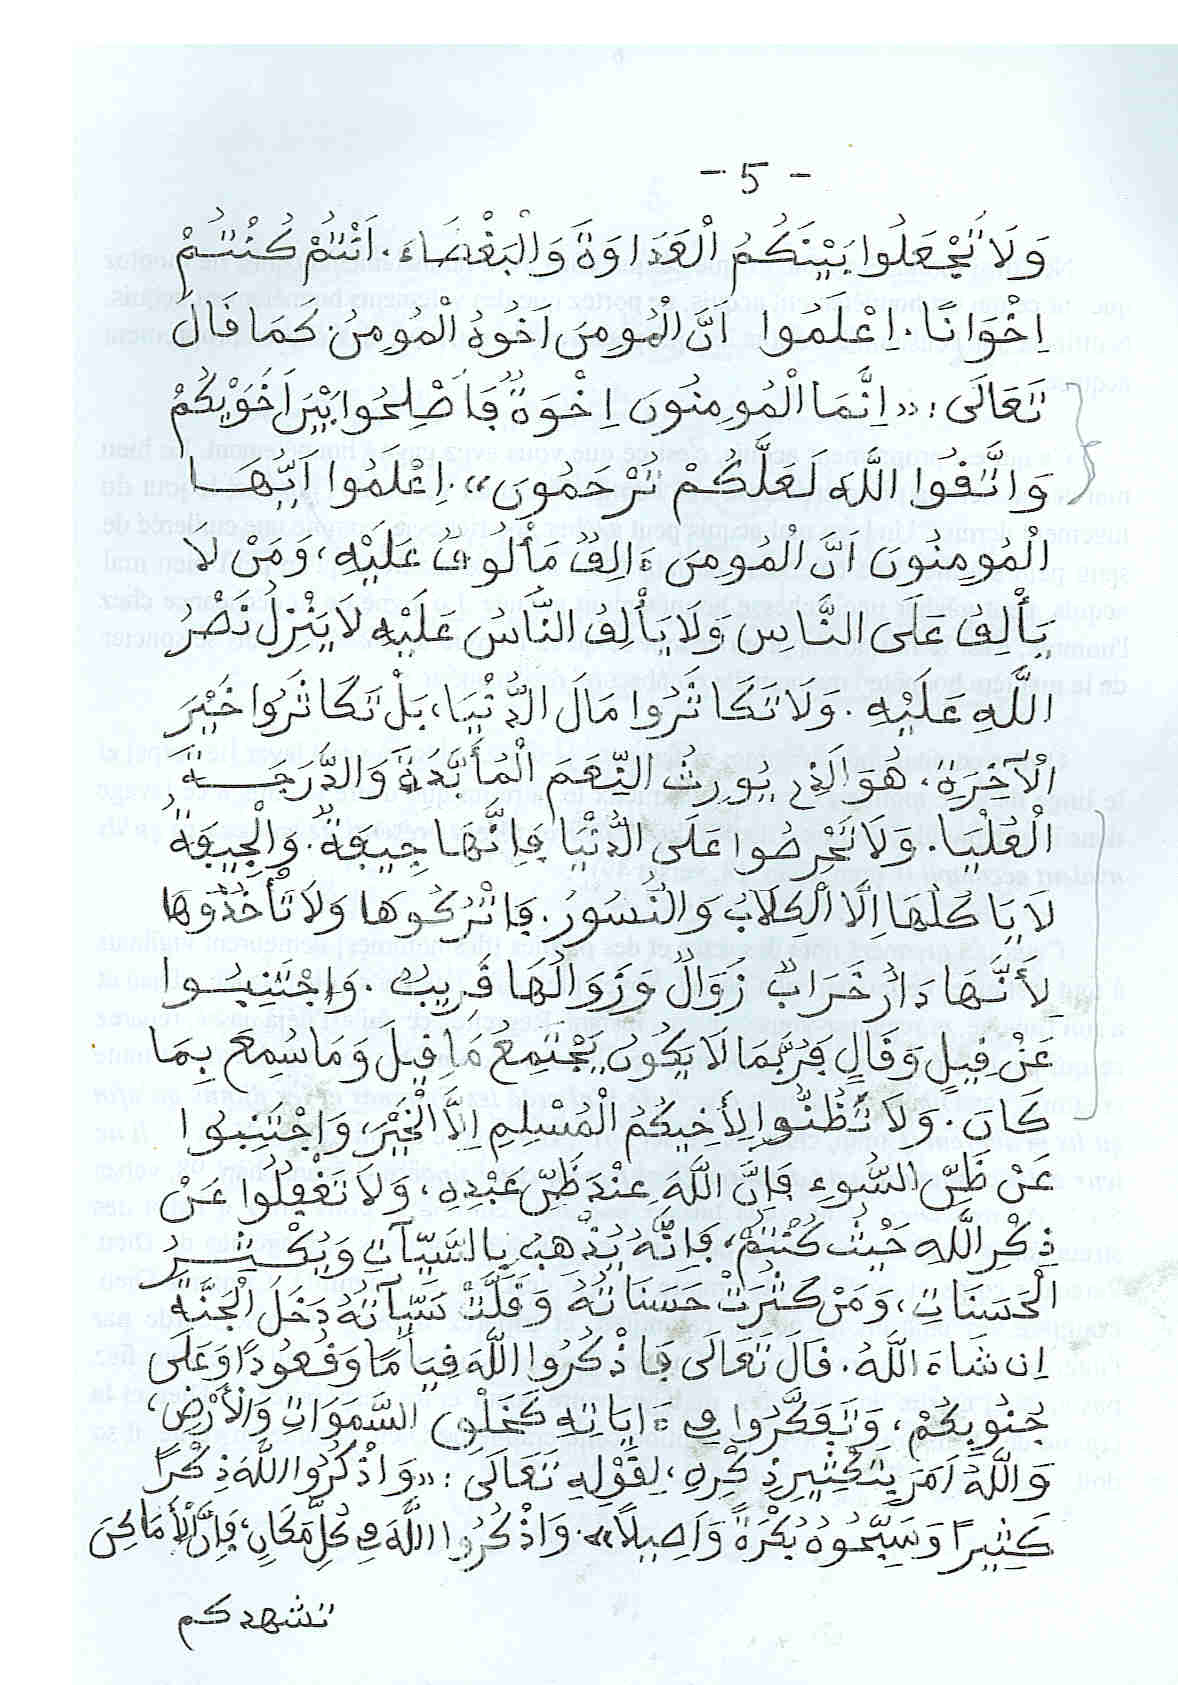 - 5 -
وَلَا تَجْعَلُوا بَيْنَكُمُ الْعَدَاوَةَ وَالْبَغْضَاءَ. اَنْتُمْ كُنْتُمْ
اِخْوَانًا. اِعْلَمُوا اَنَّ الْمُومِنَ اَخُوهُ الْمُومِنُ. كَمَا قَالَ
تَعَالَى: «اِنَّمَا الْمُومِنُونَ اِخْوَةٌ فَأَصْلِحُوا بَيْنَ أَخَوَيْكُمْ
وَاتَّقُوا اللَّهَ لَعَلَّكُمْ تُرْحَمُونَ». اِعْلَمُوا اَيُّهَا
الْمُومِنُونَ اَنَّ الْمُومِنَ ءَالِفٌ مَأْلُوفٌ عَلَيْهِ، وَمَنْ لَا
يَأْلِفُ عَلَى النَّاسِ وَلَا يَأْلِفُ النَّاسُ عَلَيْهِ لَا يَنْزِلُ نَصْرُ
اللَّهِ عَلَيْهِ. وَلَا تَكَاثَرُوا مَالَ الدُّنْيَا، بَلْ تَكَاثَرُوا خَيْرَ
الْآخِرَةِ، هُوَ الَّذِي يُورِثُ النِّعَمَ الْمُأَبَّدَةَ وَالدَّرَجَةَ
الْعُلْيَا. وَلَا تَحْرِصُوا عَلَى الدُّنْيَا فَإِنَّهَا جِيفَةٌ. وَالْجِيفَةُ
لَا يَاكُلُهَا اِلَّا الْكِلَابُ وَالنُّسُورُ. فَاتْرُكُوهَا وَلَا تَأْخُذُوهَا
لِأَنَّهَا دَارُ خَرَابٌ زَوَالٌ وَزَوَالُهَا قَرِيبٌ. وَاجْتَنِبُوا
عَنْ قِيلٍ وَقَالٍ فَرُبَّمَا لَا يَكُونُ يَجْتَمِعُ مَا قِيلَ وَمَا سُمِعَ بِمَا
كَانَ. وَلَا تَظُنُّوا لِأَخِيكُمُ الْمُسْلِمِ اِلَّا الْخَيْرَ، وَاجْتَنِبُوا
عَنْ ظَنِّ السُّوءِ فَإِنَّ اللَّهَ عِنْدَ ظَنِّ عَبْدِهِ، وَلَا تَغْفِلُوا عَنْ
ذِكْرِ اللَّهِ حَيْثُ كُنْتُمْ، فَإِنَّهُ يُذْهِبُ بِالسَّيِّآتِ وَيُكْثِرُ
الْحَسَنَاتِ، وَمَنْ كَثُرَتْ حَسَنَاتُهُ وَقَلَّتْ سَيِّآتُهُ دَخَلَ الْجَنَّةَ
اِن شَاءَ اللَّهُ. قَالَ تَعَالَى فَاذْكُرُوا اللَّهَ قِيَامًا وَقُعُودًا وَعَلَى
جُنُوبِكُمْ، وَتَفَكَّرُوا فِي ءَايَاتِهِ كَخَلْقِ السَّمَوَاتِ وَالْأَرْضِ،
وَاللَّهُ اَمَرَ بِتَكْثِيرِ ذِكْرِهِ، لِقَوْلِهِ تَعَالَى: «وَاذْكُرُوا اللَّهَ ذِكْرًا
كَثِيرًا وَسَبِّحُوهُ بُكْرَةً وَاَصِيلًا». وَاذْكُرُوا اللَّهَ فِي كُلِّ مَكَانٍ، فَإِنَّ الْأَمَاكِنَ
تشهدكم